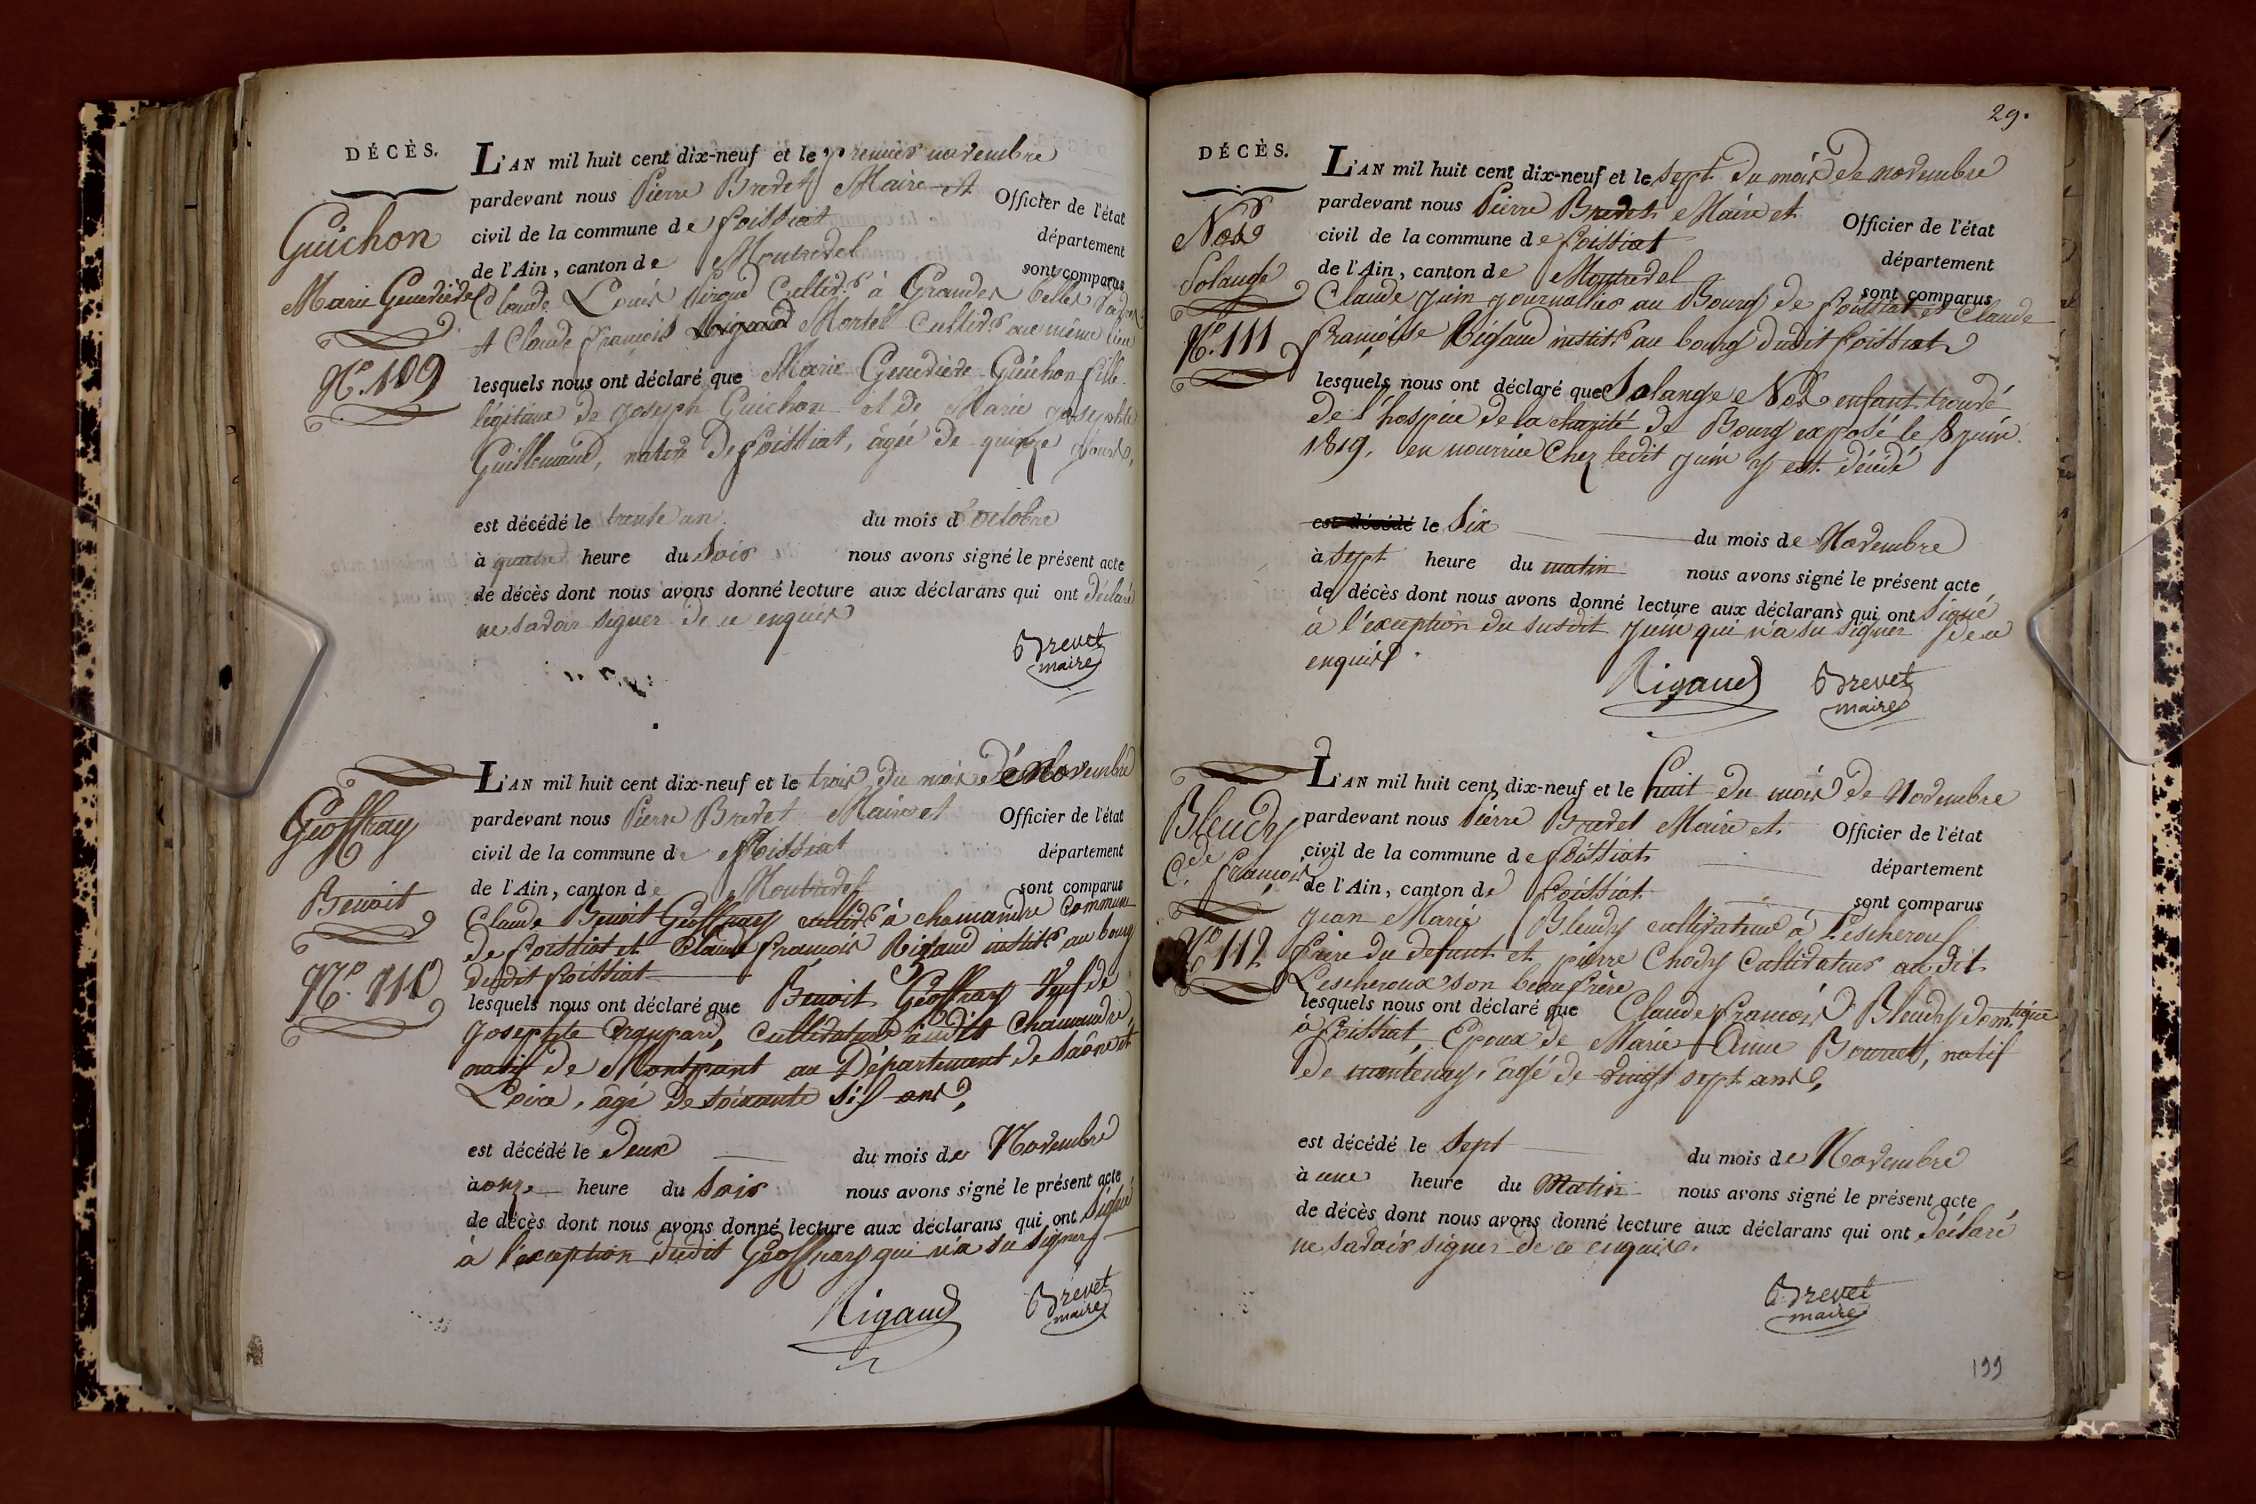 DÉCÈS.
Guichon
Marie Genevieve
N.° 109
L'AN mil huit cent dix-neuf et le premier novembre
pardevant nous Pierre Brevet Maire et Officier de l'état
civil de la commune de foissiat département
de l'Ain, canton de Montrevel sont comparus
Claude Louis Cultivr à Grandes
et Claude françois Montel Cultivr au même lieu
lesquels nous ont déclaré que Marie Genevieve Guichon fille
légitime de Joseph Guichon et de Marie Josephte
Guillemaud, native de foissiat, âgée de quinze jours,
est décédé le trente un du mois d'octobre
à quatre heure du soir nous avons signé le présent acte
de décès dont nous avons donné lecture aux déclarans qui ont déclaré
ne savoir signer de ce enquis
Brevet
maire
Geoffray
Benoit
N.° 110
L'AN mil huit cent dix-neuf et le trois du mois de Novembre
pardevant nous Pierre Brevet Maire et Officier de l'état
civil de la commune de foissiat département
de l'Ain, canton de Montrevel sont comparus
Claude Benoit Geoffray cultivr à chamandre commune
de foissiat et Claude françois Rigaud institr au bourg
dudit foissiat
lesquels nous ont déclaré que Benoit Geoffray Veuf de
Josephte Cultivateur audit Chamandre,
natif de Montpont au Département de Saône et
Loire, âgé de soixante six ans,
est décédé le deux du mois de Novembre
à onze heure du soir nous avons signé le présent acte
de décès dont nous avons donné lecture aux déclarans qui ont signé
à l'exception dudit Geoffray qui n'a su signer
Rigaud
Brevet
maire
29.
DÉCÈS.
Nod
Solange
N.° 111
L'AN mil huit cent dix-neuf et le sept du mois de novembre
pardevant nous Pierre Brevet Maire et Officier de l'état
civil de la commune de foissiat département
de l'Ain, canton de Montrevel sont comparus
Claude Juin journallier au Bourg de foissiat et Claude
françoise Rigaud institr au bourg dudit foissiat
lesquels nous ont déclaré que Solange Nod enfant trouvé
de l'hospice de la charité de Bourg exposé le 8 juin
1819, en nourrice chez ledit Juin y est décédé
est décédé le six du mois de Novembre
à sept heure du matin nous avons signé le présent acte
de décès dont nous avons donné lecture aux déclarans qui ont signé
à l'exception du susdit Juin qui n'a su signer de ce
enquis.
Rigaud
Brevet
maire
Bleudy
C.de françois
N.° 112
L'AN mil huit cent dix-neuf et le huit du mois de Novembre
pardevant nous Pierre Brevet Maire et Officier de l'état
civil de la commune de foissiat département
de l'Ain, canton de foissiat sont comparus
Jean Marie Bleudy cultivateur à Lescheroux
frère du défunt et pierre Chody Cultivateur audit
Lescheroux son beau frère
lesquels nous ont déclaré que Claude françois Bleudy domestique
à foissiat, Epoux de Marie Anne natif
de mantenay, âgé de vingt sept ans,
est décédé le sept du mois de Novembre
à une heure du Matin nous avons signé le présent acte
de décès dont nous avons donné lecture aux déclarans qui ont déclaré
ne savoir signer de ce enquis.
Brevet
maire
199